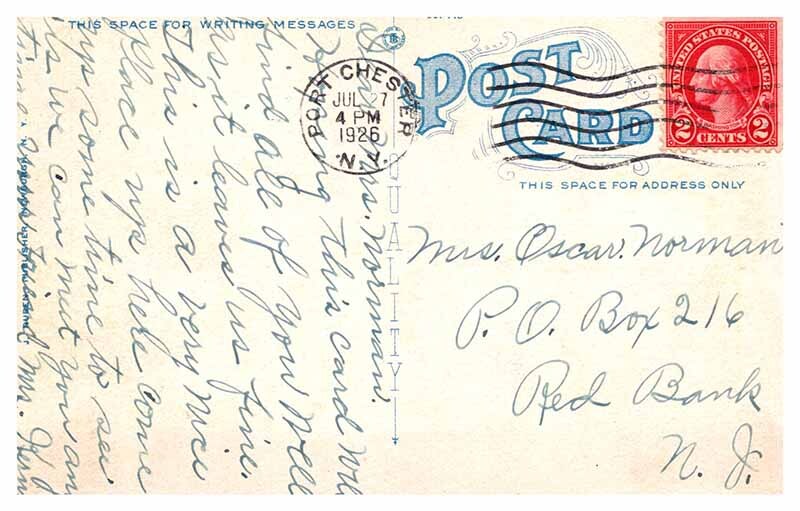 THIS SPACE FOR WRITING MESSAGES
Mrs. Norman.
Hoping this card Will
find all of You Well
as it leaves us fine.
This is a very nice
place up here come
up some time to see
us we can meet you an
time Your Friend Mrs.
PUBLISHER, NEWBURGH, N. Y.
QUALITY
PORT CHESTER
JUL 27
4 PM
1926
N.Y.
POST
CARD
UNITED STATES POSTAGE
2 CENTS 2
THIS SPACE FOR ADDRESS ONLY
Mrs. Oscar. Norman
P. O. Box 216
Red Bank
N. J.